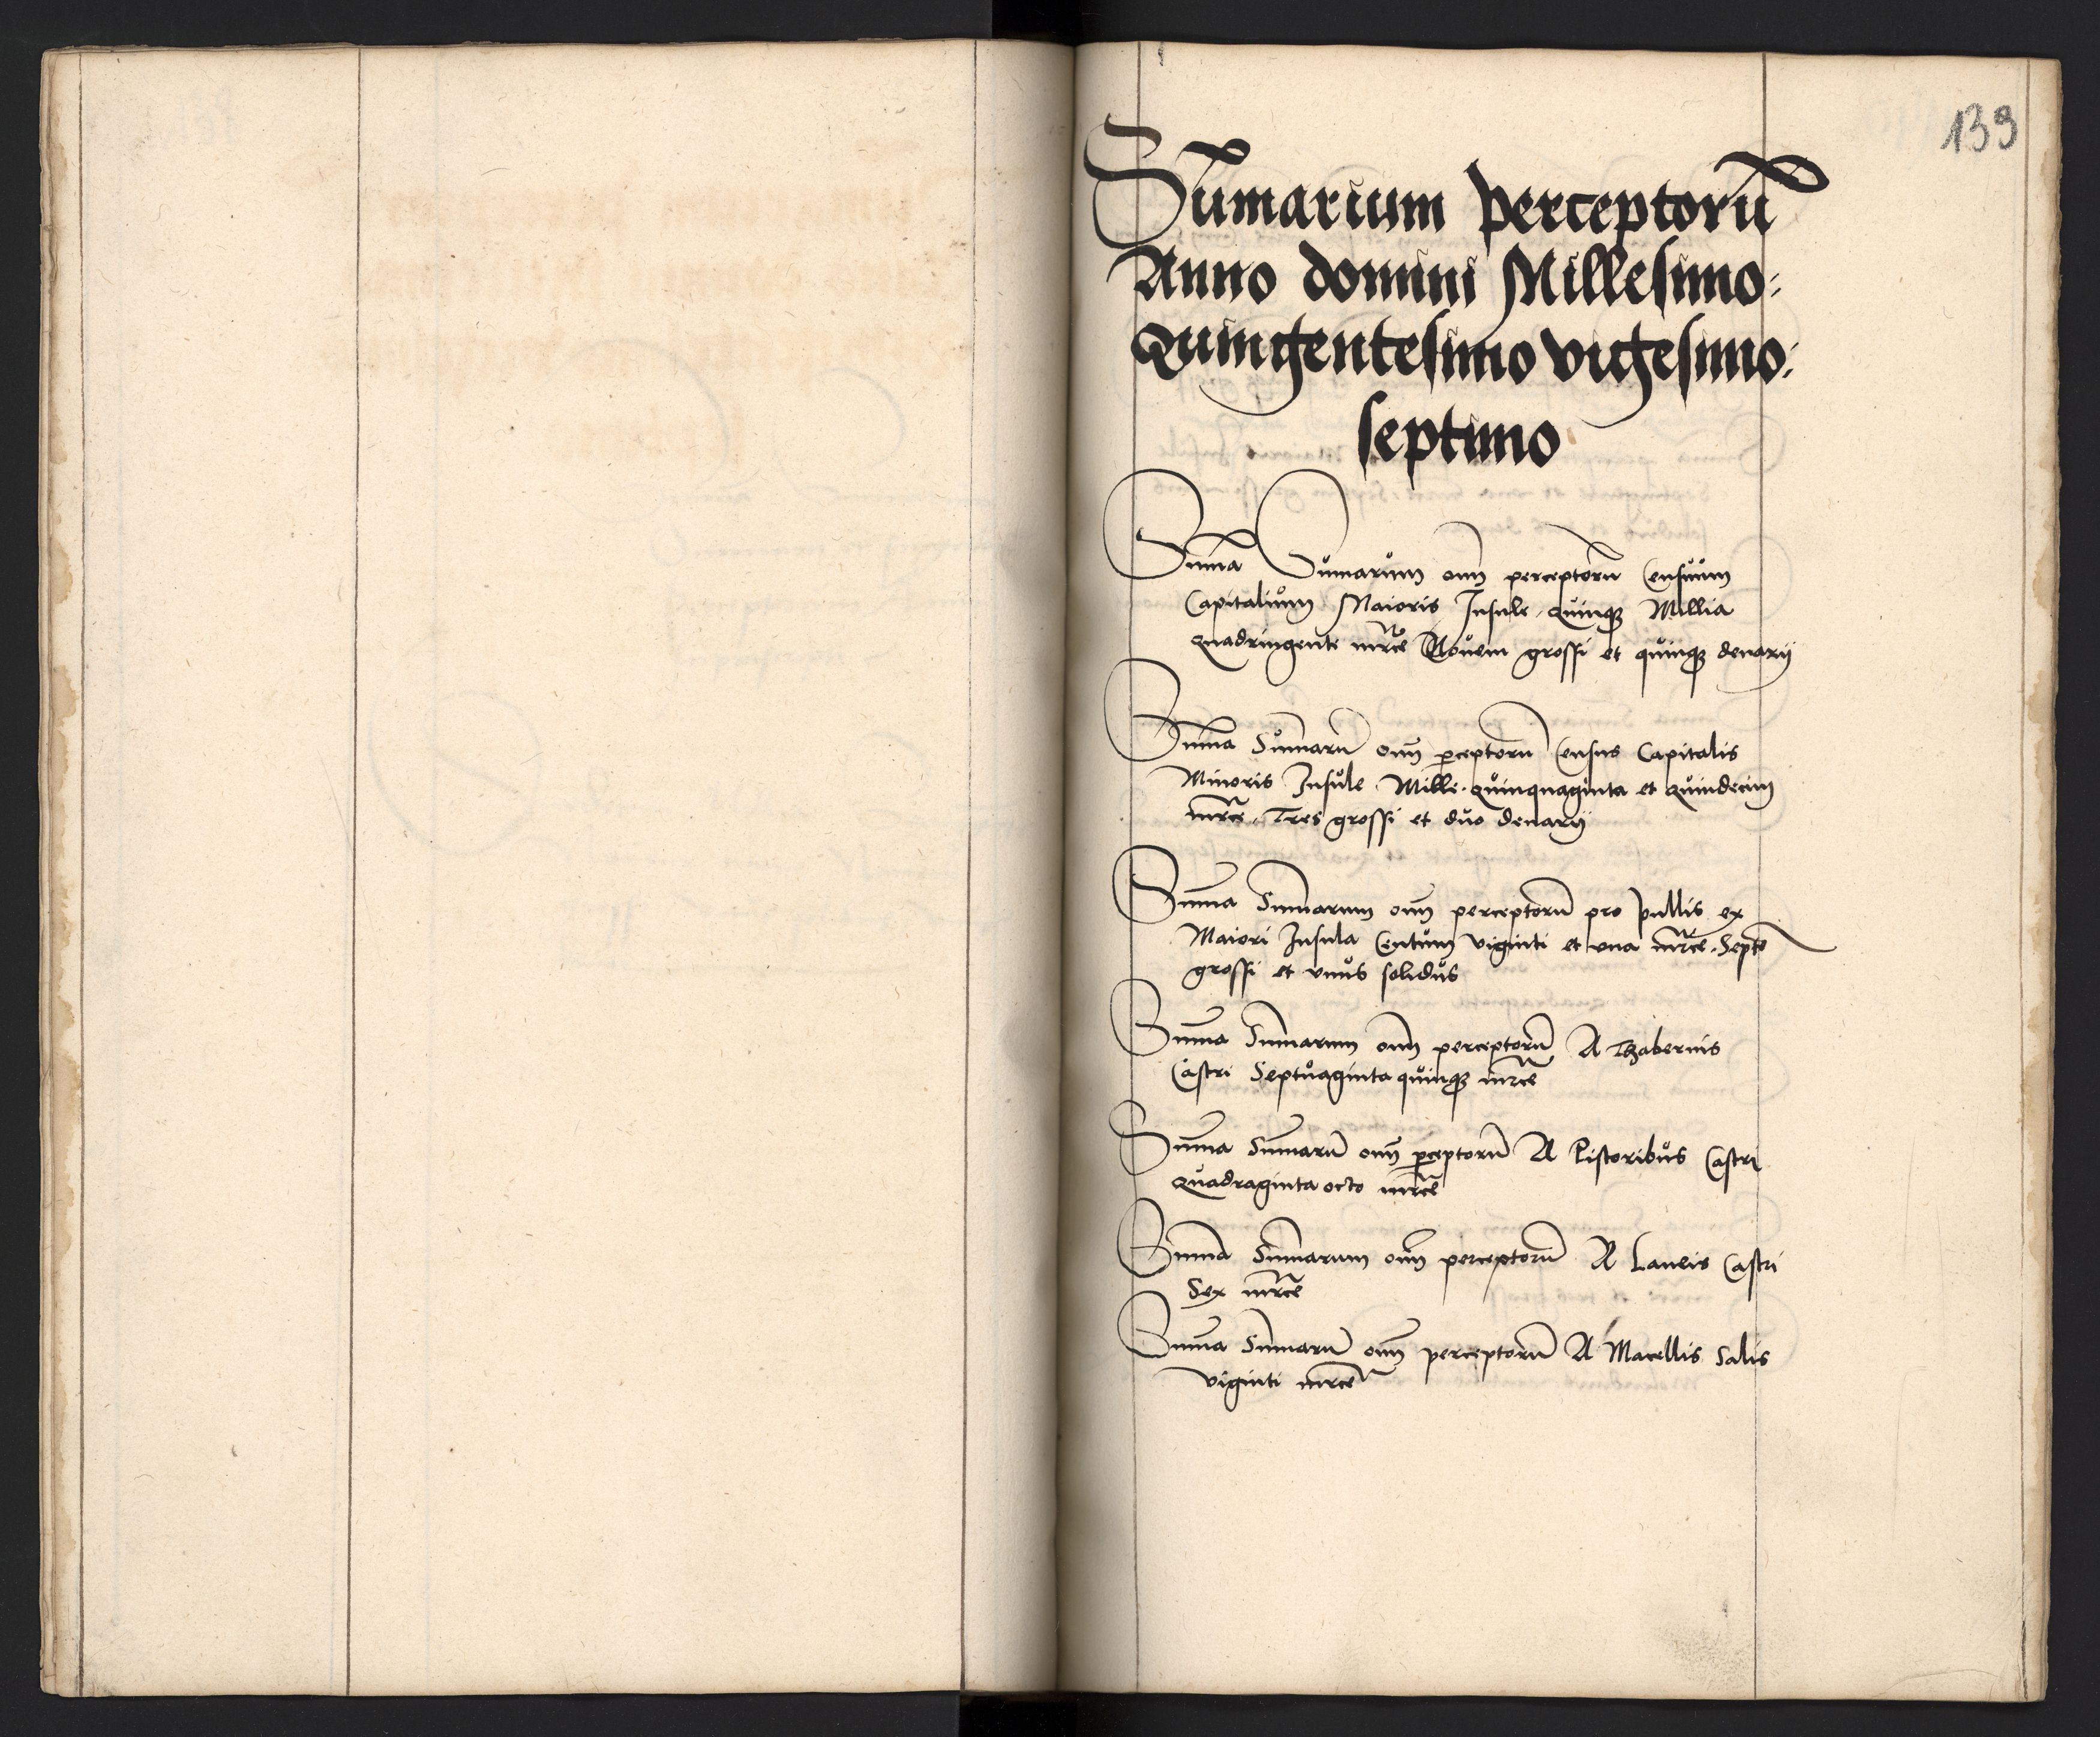 139
Sumarium perceptorū
Anno domini Millesimo:
Quingentesimo vigesimo:
septimo
Suma Sumarum oım perceptorū Censuum
Capitalium Maioris Insule. quinqȝ Millia
quadringente mrce Nouem grossi et quinqȝ denarij
Suma Sumarū oım perceptorū Census Capitalis
Minoris Insule Mille. quinquaginta et quindecim
mrce. Tres grossi et duo denarij
Suma Sumarum oım perceptorū pro pullis ex
Maiori Insula Centum viginti et vna mrce. Septē
grossi et vnus solidus
Suma Sumarum oım perceptorū A Thabernis
Castri Septuaginta quinqȝ mrce
Suma Sumarū oım perceptorū A Pistoribus Castri
quadraginta octo mrce
Suma Sumarum oım perceptorū A Laneis Castri
Sex mrce
Suma Sumarū oım perceptorū A Macellis Salis
viginti mrce